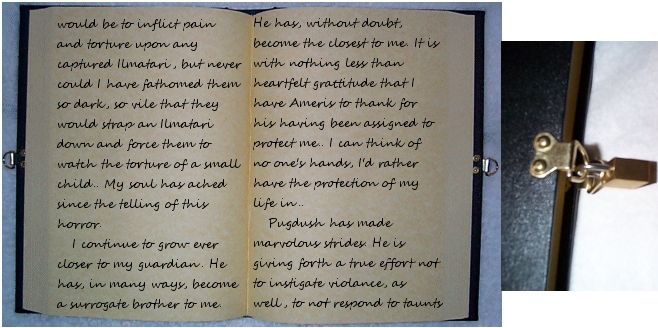 would be to inflict pain
and torture upon any
captured Ilmatari, but never
could I have fathomed them
so dark, so vile that they
would strap an Ilmatari
down and force them to
watch the torture of a small
child.. My soul has ached
since the telling of this
horror.
I continue to grow ever
closer to my guardian. He
has, in many ways, become
a surrogate brother to me.
He has, without doubt,
become the closest to me. It is
with nothing less than
heartfelt grattitude that I
have Ameris to thank for
his having been assigned to
protect me.. I can think of
no one's hands, I'd rather
have the protection of my
life in..
Pugdush has made
marvolous strides. He is
giving forth a true effort not
to instigate violance, as
well, to not respond to taunts